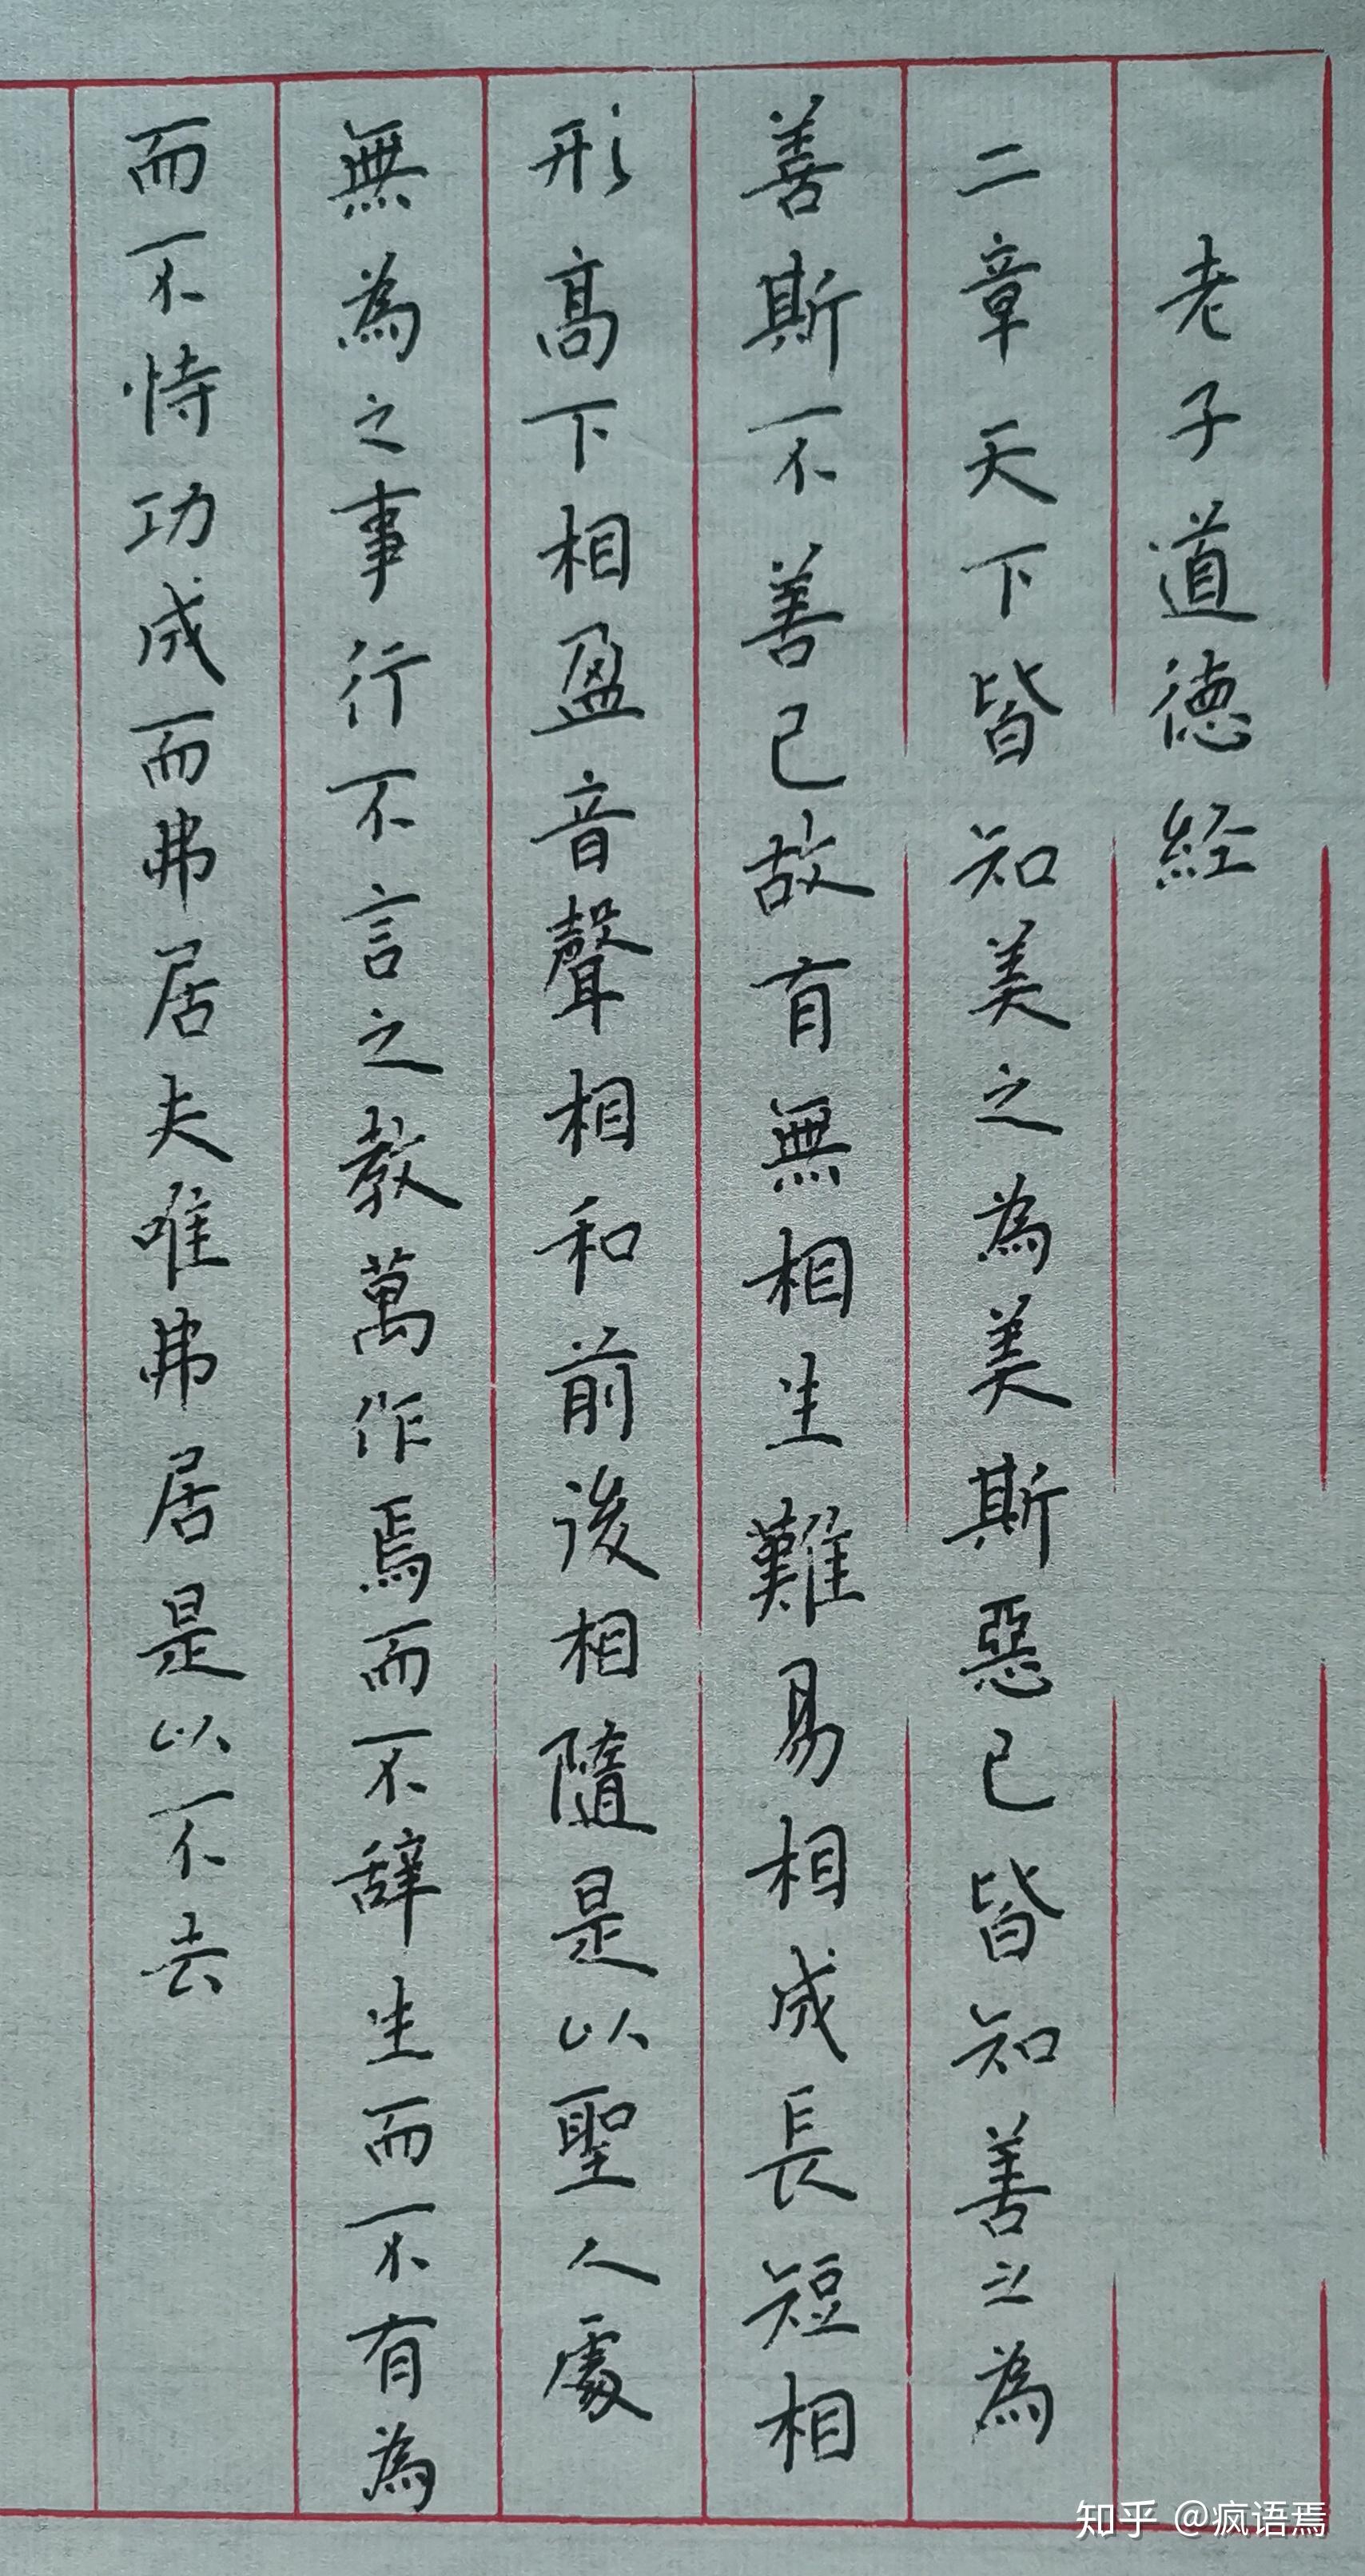 老子道德経
二章天下皆知美之為美斯惡已皆知善之為
善斯不善已故有無相生難易相成長短相
形高下相盈音聲相和前後相隨是以聖人處
無為之事行不言之教萬作焉而不辞生而不有為
而不恃功成而弗居夫唯弗居是以不去
知乎 @疯语焉